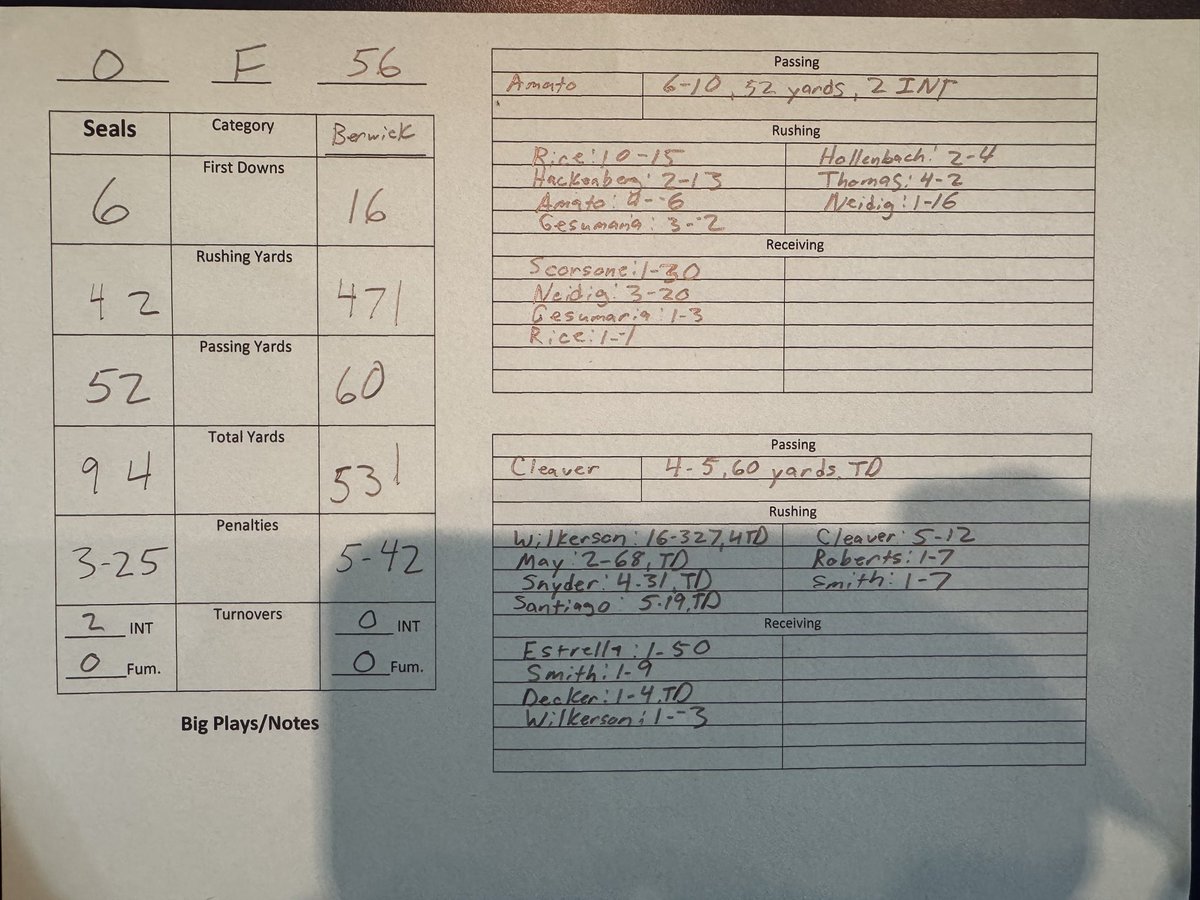 0 F 56
Seals Category Berwick
First Downs
6 16
Rushing Yards
42 471
Passing Yards
52 60
Total Yards
94 531
Penalties
3-25 5-42
Turnovers
2 INT 0 INT
0 Fum. 0 Fum.
Big Plays/Notes
Passing
Amato 6-10, 52 yards, 2 INT
Rushing
Rice: 10-15 Hollenbach: 2-4
Hackenberg: 2-13 Thomas: 4-2
Amato: 4--6 Neidig: 1-16
Gesumaria: 3--2
Receiving
Scorsone: 1-30
Neidig: 3-20
Gesumaria: 1-3
Rice: 1--1
Passing
Cleaver 4-5, 60 yards, TD
Rushing
Wilkerson: 16-327, 4TD Cleaver: 5-12
May: 2-68, TD Roberts: 1-7
Snyder: 4-31, TD Smith: 1-7
Santiago: 5-19, TD
Receiving
Estrella: 1-50
Smith: 1-9
Decker: 1-4, TD
Wilkerson: 1--3